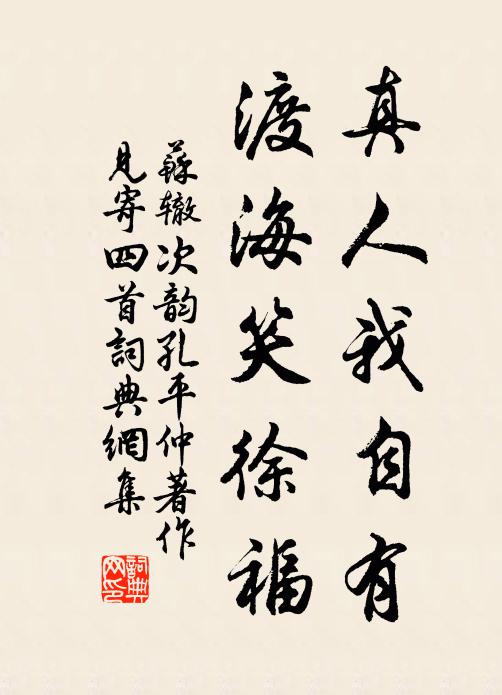 真人我自有
渡海笑徐福
蘇辙次韵孔平仲著作
見寄四首詞典網集
詞典
网印